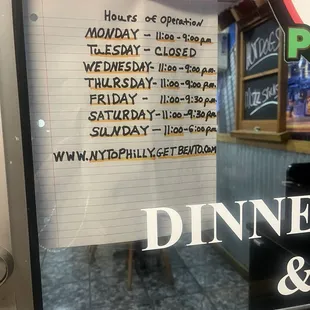 Hours of Operation
MONDAY - 11:00-9:00 p.m
TUESDAY - CLOSED
WEDNESDAY- 11:00-9:00 p.m
THURSDAY - 11:00-9:00 p.m
FRIDAY - 11:00-9:30 p.m
SATURDAY- 11:00-9:30 p.m
SUNDAY - 11:00-6:00 p.m
WWW.NYTOPHILLY.GETBENTO.COM
DINNE
&
P